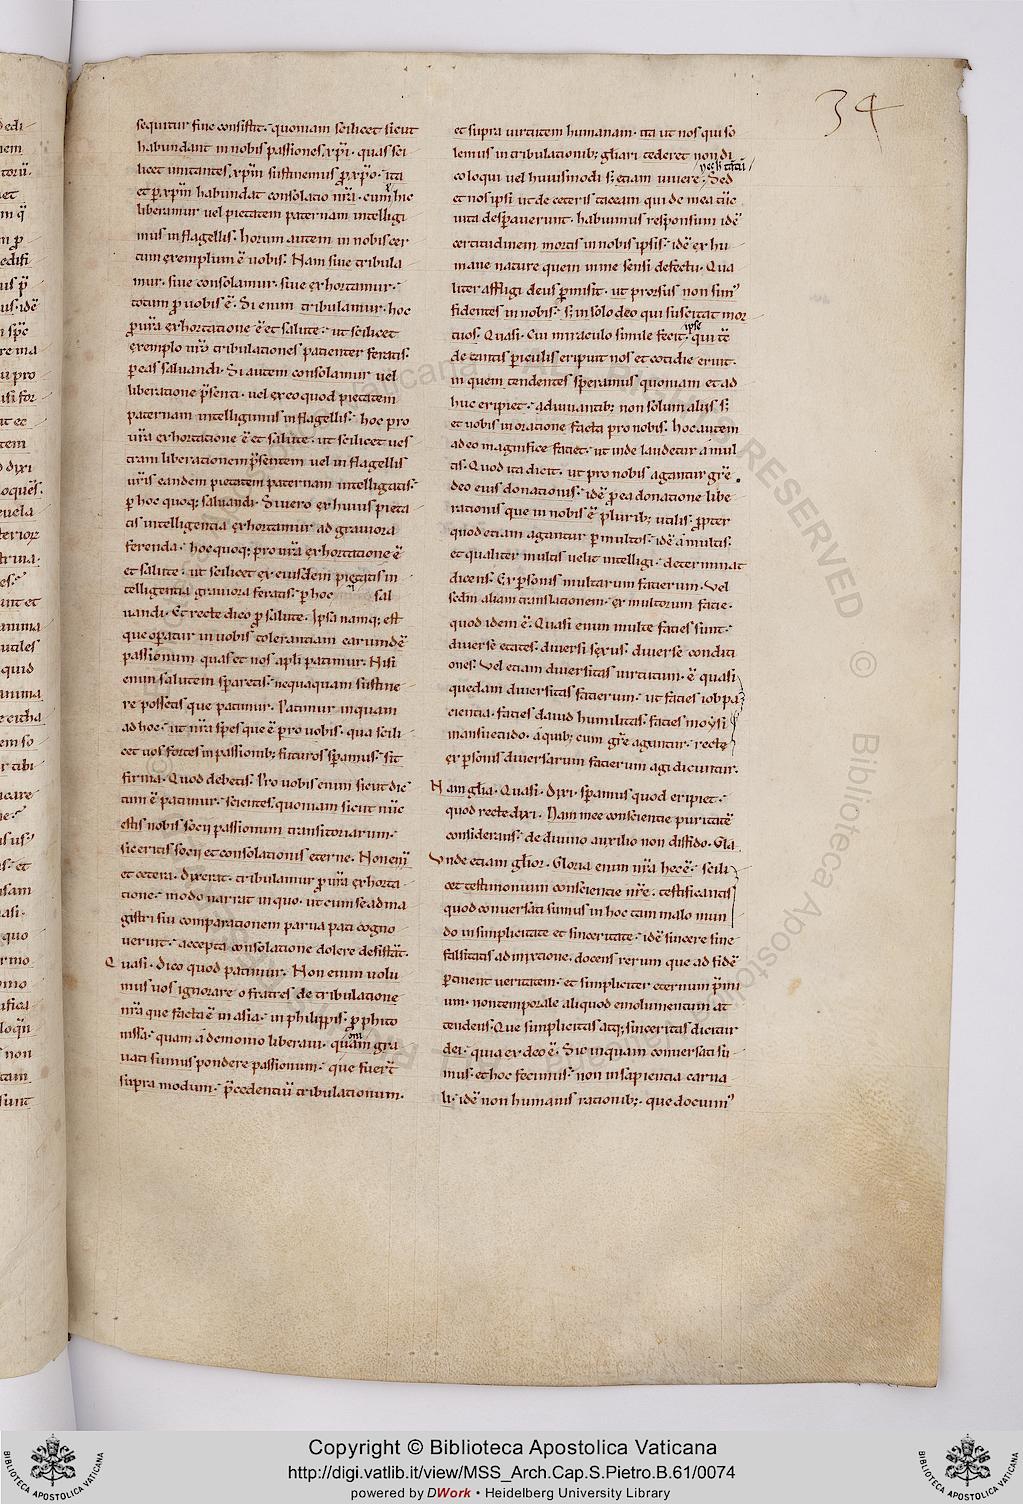 34
sequitur fine consistit. quoniam scilicet sicut
habundant in nobis passiones xp̄i. quas sci
licet imitantes xp̄m sustinemus p̱ xp̄o. ita
et p̱ xp̄m habundat consolatio nr̄a. cum hic
liberamur vel pietatem paternam intelligi
mus in flagellis. horum autem in nobis cer
tum exemplum ē uobis. Nam siue tribula
mur. siue consolamur. siue exhortamur.
totum p̱ uobis ē. Si enim tribulamur. hoc
p̱ ur̄a exhortatione ē et salute. ut scilicet
exemplo nr̄o tribulationes patienter feratis.
p̱ eas saluandi. Si autem consolamur vel
liberatione p̄senti. vel ex eo quod pietatem
paternam intelligimus in flagellis. hoc pro
ur̄a exhortatione ē et salute. ut scilicet ues
tram liberationem p̄sentem vel in flagellis
ur̄is eandem pietatem paternam intelligatis.
p̱ hoc quoq; saluandi. Si uero ex huius pieta
tis intelligentia exhortamur ad grauiora
ferenda. hoc quoq; pro ur̄a exhortatione ē
et salute. ut scilicet ex eiusdem pietatis in
telligentia grauiora feratis. p̱ hoc sal
uandi. Et recte dico p̱ salute. Ipsa namq; est
que op̱atur in uobis tolerantiam earundē
passionum quas et nos ap̄li patimur. Nisi
enim salutem sp̱aretis. nequaquam sustine
re possetis que patimur. Patimur inquam
ad hoc. ut nr̄a spes que ē pro uobis. qua scili
cet uos fortes in passionib; futuros sp̱amus. sit
firma. Quod debetis. Pro uobis enim sicut dic
tum ē patimur. scientes. quoniam sicut nūc
estis nobis socii passionum transitoriarum.
sic eritis socii et consolationis eterne. Non enī
et cetera. dixerat. tribulamur p̱ ur̄a exhorta
tione. modo narrat in quo. ut cum se ad ma
gistri sui comparationem parua pati cogno
uerint. accepta consolatione dolere desistāt.
Quasi. dico quod patimur. Non enim uolu
mus uos ignorare o fratres de tribulatione
nr̄a que facta ē in asia. in philippis. p̱ phito
nissa. quam a demonio liberaui. quam gra
uati sumus pondere passionum. que fuer̄t
supra modum. p̄cedentiū tribulationum.
et supra uirtutem humanam. ita ut nos qui so
lemus in tribulationib; gl̄iari tederet non di
co loqui vel huiusmodi s; etiam uiuere. Sed
et nos ipsi ut de ceteris taceam qui de mea tūc
uita desp̱auerunt. habuimus responsum idē
certitudinem mortis in nobis ipsis. idē ex hu
mane nature quem in me sensi defectu. Qua
liter affligi deus p̱misit. ut prorsus non sim
fidentes in nobis. s; in solo deo qui suscitat mor
tuos. Quasi. Cui miraculo simile fecit. ipse qui
de tantis p̱iculis eripuit nos et cotidie eruit.
in quem tendentes sp̱amus quoniam et ad
huc eripiet. adiuuantib; non solum aliis s;
et uobis in oratione facta pro nobis. hoc autem
adeo magnifice faciet. ut inde laudetur a mul
tis. Quod ita dicit. ut pro nobis agantur gr̄e
deo eius donationis. idē p̱ ea donatione libe
rationis que in nobis ē plurib; utilis. p̱pter
quod etiam agantur p̱ multos. idē a multis.
et qualiter multis uelit intelligi. determinat
dicens. Ex p̱sonis multarum facierum. Vel
sc̄dm aliam translationem. ex multorum facie.
quod idem ē. Quasi enim multe facies sunt.
diuerse etates. diuersi sexus. diuerse conditi
ones. Vel etiam diuersitas uirtutum. ē quasi
quedam diuersitas facierum. ut facies iob pa
cientia. facies dauid humilitas. facies moysi
mansuetudo. a quib; cum gr̄e agantur. recte
ex p̱sonis diuersarum facierum agi dicuntur.
Nam gl̄ia. Quasi. dixi. sp̱amus quod eripiet.
quod recte dixi. Nam mee conscientie puritatē
considerans. de diuino auxilio non diffido. Gl̄a
Vnde etiam gl̄ior. Gloria enim nr̄a hec ē. scili
cet testimonium conscientie nr̄e. testificantis
quod conuersati sumus in hoc tam malo mun
do in simplicitate et sinceritate. idē sincere sine
falsitatis admixtione. docens rerum que ad fidē
p̱tinent ueritatem. et simpliciter eternum p̄mi
um. non temporale aliquod emolumentum at
tendens. Que simplicitas atq; sinceritas dicitur
dei. quia ex deo ē. Sic inquam conuersati su
mus. et hoc fecimus. non in sapientia carna
li. idē non humanis rationib;. que docuim
Copyright © Biblioteca Apostolica Vaticana
http://digi.vatlib.it/view/MSS_Arch.Cap.S.Pietro.B.61/0074
powered by DWork • Heidelberg University Library